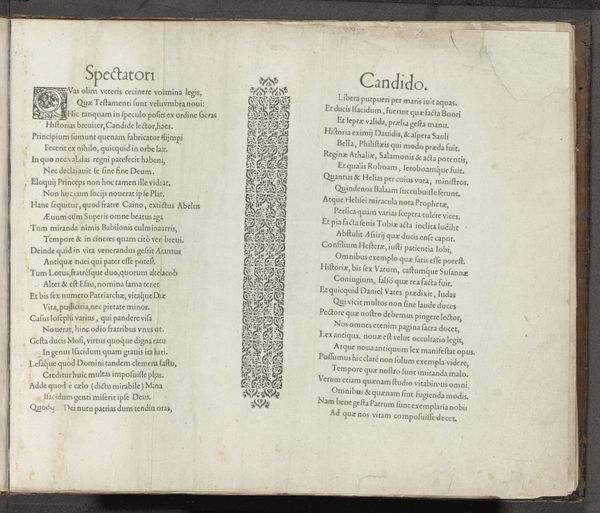 Spectatori
QVas olim veteris cecinere volumina legis,
Quæ Testamenti sunt velut umbra noui:
Hic tanquam in speculo positas ex ordine sacras
Historias breuiter, Candide lector, habes.
Principium sumunt quenam fabricator Olympi
Fecerit ex nihilo, quicquid in orbe latet.
In quo nec validas regni patefecit habeni,
Nec declarauit se sine fine Deum.
Eloquij Princeps non hoc tamen ille videtur,
Non hoc cum socijs nouerat ipse Plat.
Hanc sequitur, quod fratre Caino, extinctus Abelus
Æuum cum Superis omne beatus agat
Tum miranda nimis Babilonis culmina turris,
Tempore & in cineres quam citò versa breui.
Deinde quid in vita venerandus gessit Aramus
Antiquæ fidei qui pater esse potest.
Tum Lotus, fratrésque duo, quorum alter Iacob
Alter & est Esau, nomina fama teret.
Et bis sex numero Patriarchæ, vitáque Diæ
Vita, pudicitia, nec pietate minor.
Casus Iosephi varius, qui pandere visa
Nouerat, hinc odio fratribus vnus ut.
Gesta ducis Mosi, virtus quoque digna ratu
In genus Isacidum quam grauis ira
Legésque quod Domini tandem clemens fastu,
Creditur huic multas imposuisse
Adde quod è cælo (dictu mirabile) Mana
Isacidum genti miserit ipse Deus.
Dei nutu patrias dum tendit oras,
Candido.
Libera purpurei per maris iuit aquas.
Et ducis Isacidum, fuerint quæ facta Booel
Et Ieptæ valida, prælia gesta manu.
Historia eximij Dauidis, & aspera Sauli
Bella, Philistæis qui modo præda fuit.
Reginæ Athaliæ, Salamonis & acta potentis,
Et qualis Roboam, Ieroboamque fuit.
Quantus & Helias per cuius vota, ministros.
Quindenos Balaam succubuisse ferunt.
Atque Helisei miracula nota Prophetæ,
Persica quàm varias sceptra tulere vices.
Et pia facta senis Tobiæ acta inclita Iudiht
Abstulit Assirij quæ ducis ense caput.
Consilium Hesteræ, iusti patientia Iobi,
Omnibus exemplo quæ satis esse potest.
Historiæ, bis sex Vatum, castumque Susannæ
Coniugium, falsò quæ rea facta fuit.
Et quicquid Daniel Vates prædixit, Iudas
Qui vicit multos non sine laude duces
Pectore quæ nostro debemus pingere lector,
Nos omnes etenim pagina sacra docet,
Lex antiqua. nouæ est velut occultatio legis,
Atque noua antiquum lex manifestat opus.
Possumus hic clarè non solum exempla videre,
Tempore quæ nostro sunt imitanda malo.
Verum etiam quænam studio vitabimus omni,
Omnibus & quænam sint fugienda modis.
Nam bene gesta Patrum sunt exemplaria nobis
Ad quæ nos vitam composuisse decet.